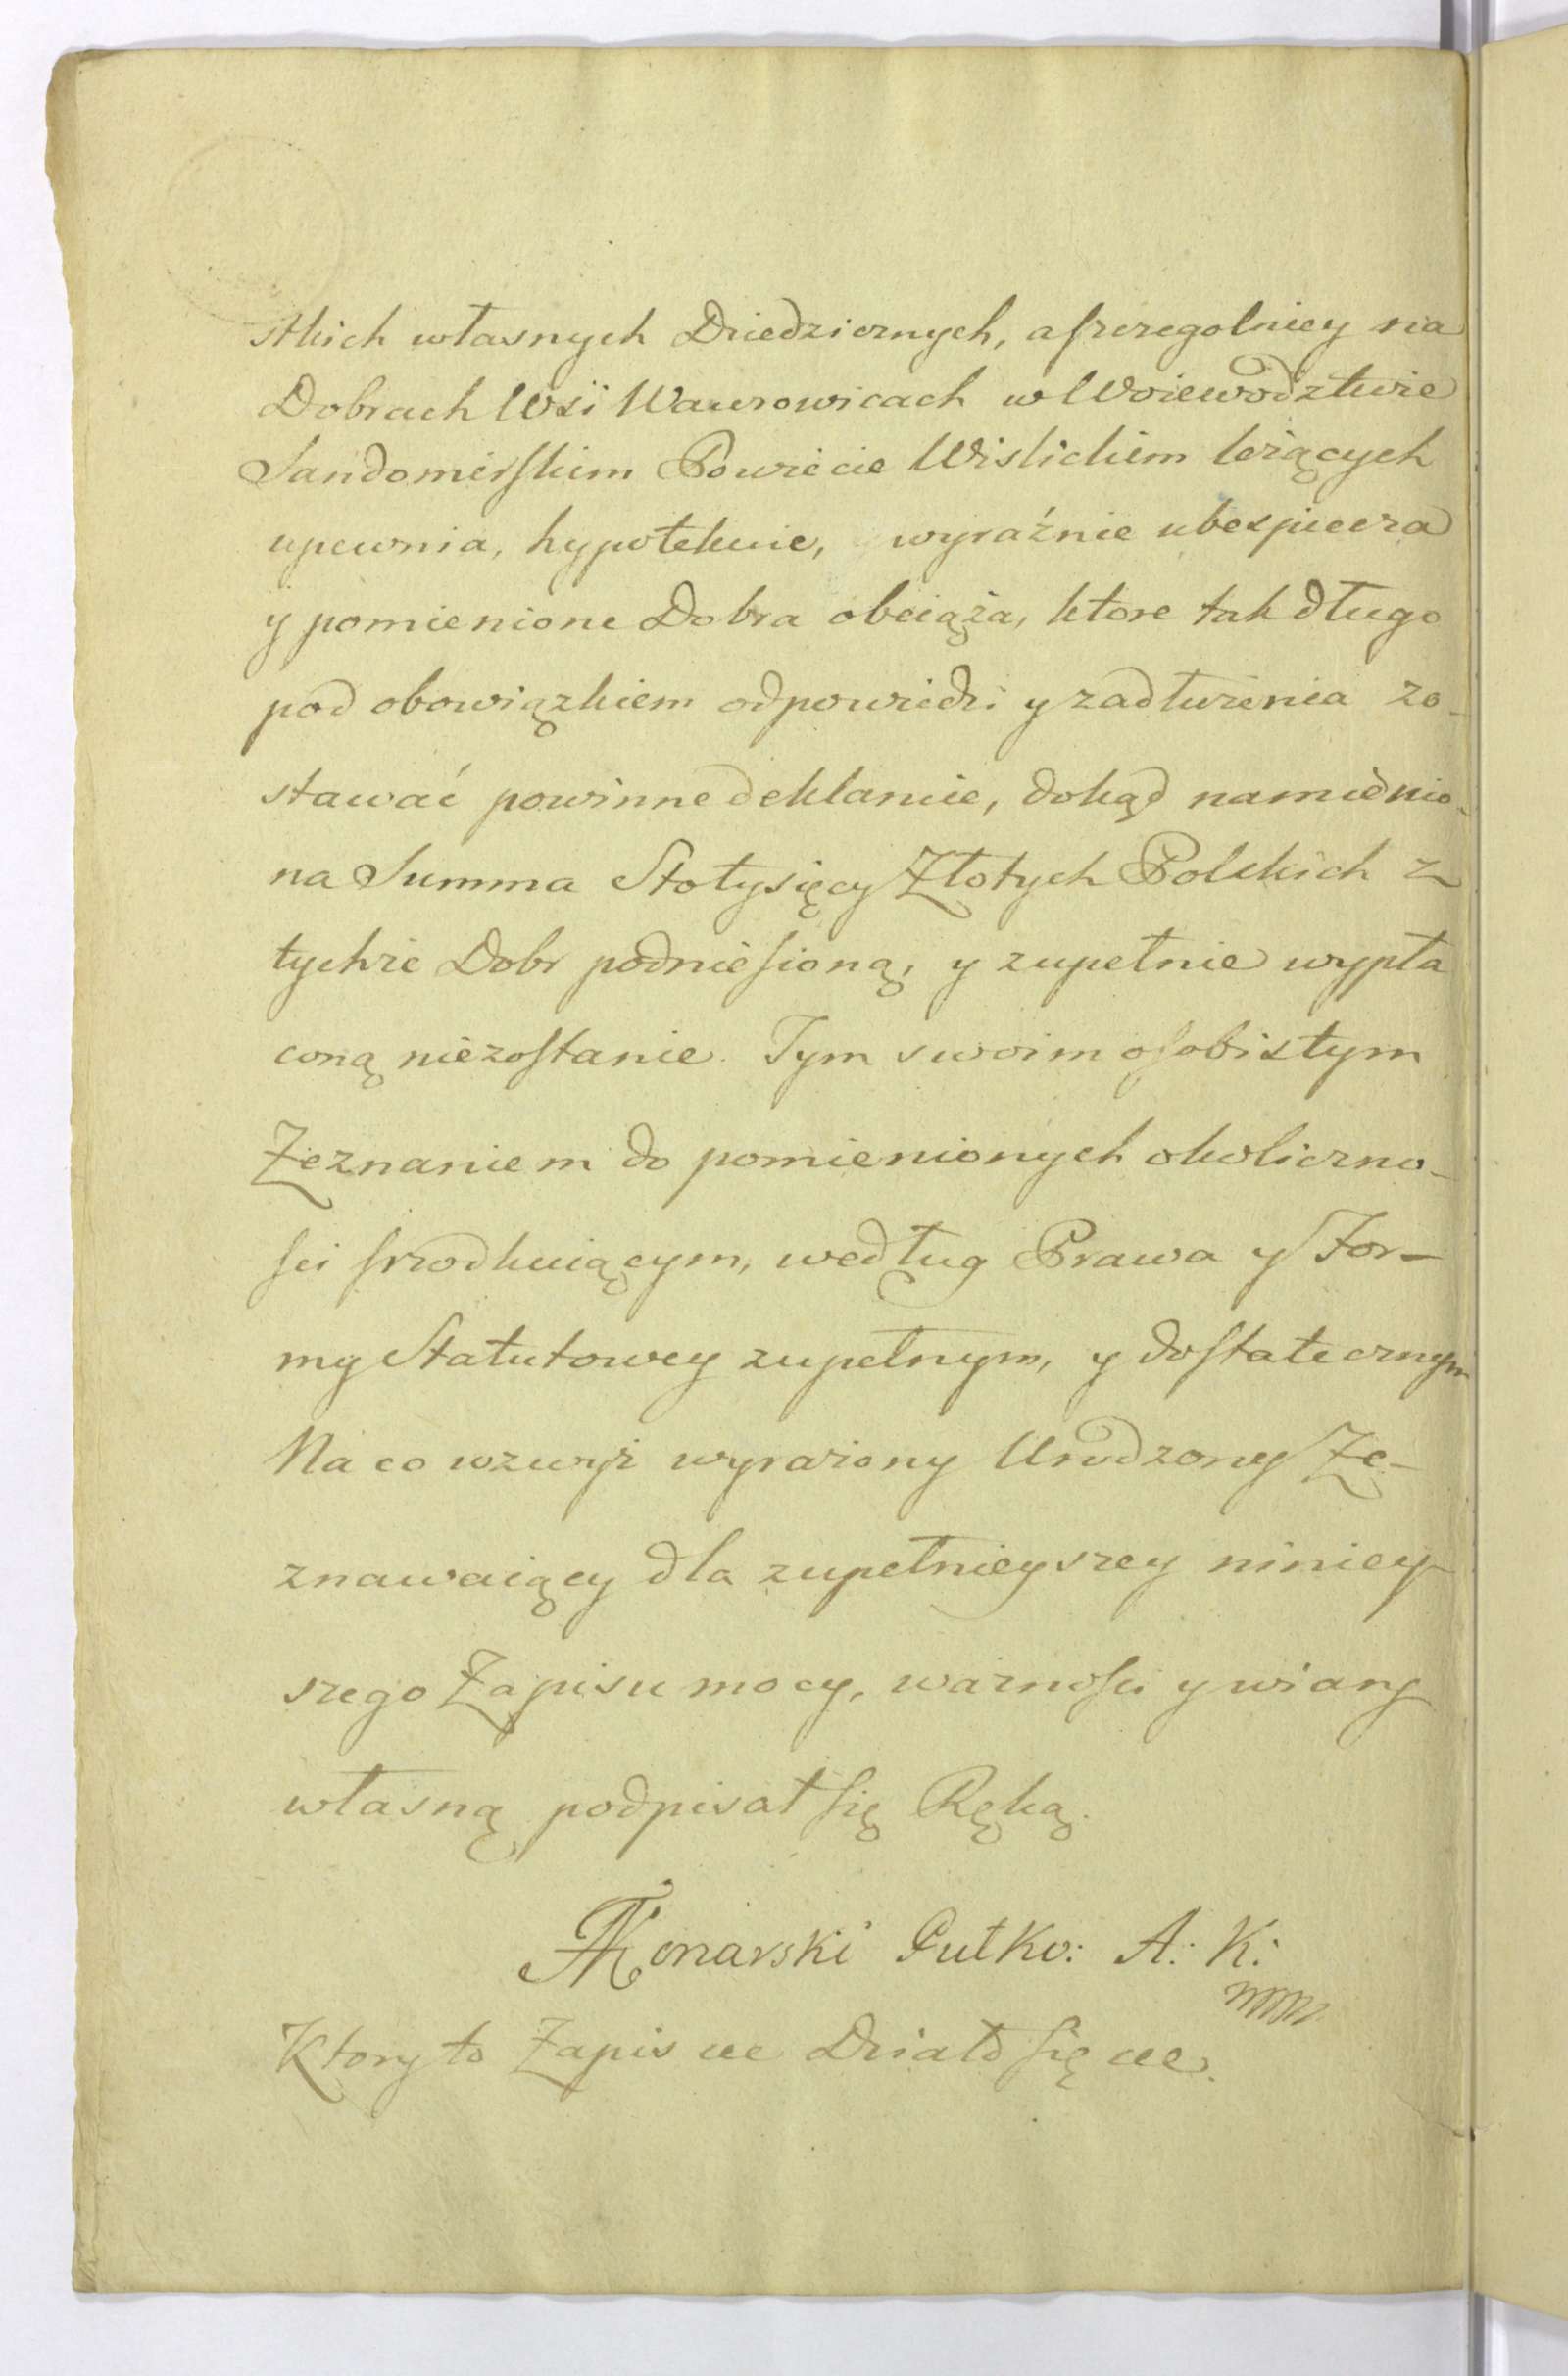 stkich własnych Dziedzicznych, a szczegolniey na
Dobrach Wsi Wawrowicach w Woiewodztwie
Sandomirskim Powiecie Wislickim leżących
upewnia, hypotekuie, wyraźnie ubespiecza
y pomienione Dobra obciąża, ktore tak długo
pod obowiązkiem odpowiedzi y zadłużenia zo-
stawać powinne deklaruie, dokąd namienio-
na Summa Stotysięcy Złotych Polskich z
tychże Dobr podniesioną, y zupełnie wypła
coną niezostanie. Tym swoim osobistym
Zeznaniem do pomienionych okoliczno-
sci srzodkuiącym, według Prawa y For-
my Statutowey zupełnym, y dostatecznym
Na co wzwyż wyrażony Urodzony Ze-
znawaiący dla zupełnieyszey niniey-
szego Zapisu mocy, ważnosci y wiary
własną podpisał się Ręką.
Konarski Pułko: A: K:
Ktory to Zapis etc Działo się etc.